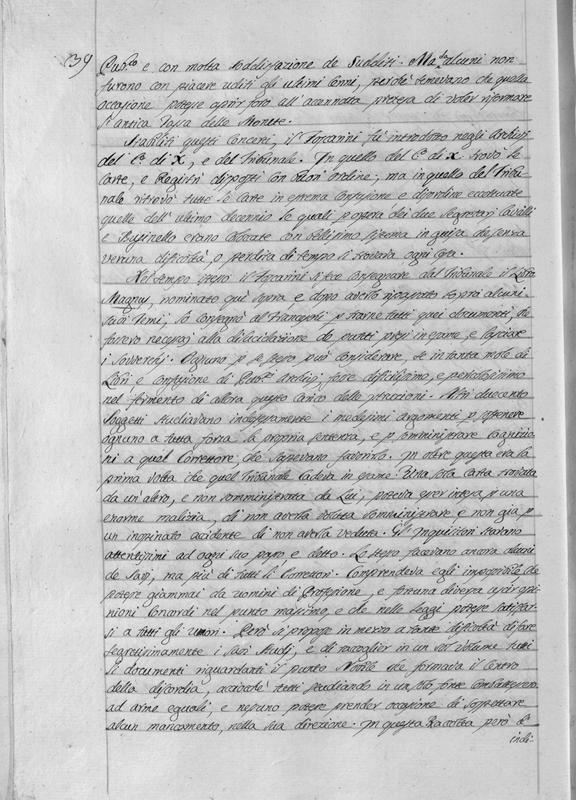 39
Pub.co e con molta sodisfazione de Sudditi. Ma alcuni non
furono con piacere uditi gli ultimi Conni, perchè temevano che quella
occasione potesse aprir foro all'accannata pretesa di voler riformare
l'antica Tassa delle Monete.
Stabiliti questi Concerti, il Foscarini fù introdotto negli Archivi
del C.o di X, e del Tribunale. In quello del C.o di X trovò le
Carte, e Registri disposti con buon ordine; ma in quello del Tribu-
nale ritrovò tutte le Carte in estrema confusione e disordine eccettuate
quelle dell'ultimo decennio le quali p opera dei due Segretarj Cavalli
e Businello erano colocate con bellissimo sistema in guisa che senza
veruna dificoltà, o perdita di tempo si trovava ogni cosa.
Nel tempo stesso il Foscarini si fece consegnare dal Tribunale il Libro
Magnus, nominato quì sopra e dopo averlo ricopiato sopra alcuni
suoi Temi, lo consegnò al Franceschi p trarne tutti quei documenti, che
fossero necessarj alla dilucidazione de punti presi in esame, e lasciare
i soverchj. Ognuno p se stesso può considerare, se in tanta mole di
Libri, e confusione di Pub.ci Archivj, fosse dificilissimo, e pericolosissimo
nel fermento di allora questo carico delle istruzioni. Altri duecento
Soggetti studiavano indefessamente i medesimi argomenti p sostenere
ognuno a tutta forza la propria sentenza, e p somministrare cognizio-
ni a quel Correttore, che sapevano favorirlo. In oltre questa era la
prima volta che quel Tribunale cadeva in esame. Una sola carta trovata
da un'altro, e non somministrata da Lui, poteva esser intesa p una
enorme malizia, di non averla voluta somministrare e non già p
un inopinato accidente di non averla veduta. Gl'Inquisitori stavano
attentissimi ad ogni suo passo e detto. Lo stesso facevano ancora alcuni
de Savj, ma più di tutti li Correttori. Comprendeva egli impossibile, che
potesse giammai da uomini di Professione, e fortuna diversa aversi opi-
nioni concordi nel punto massimo, e che nelle Leggi potesse sodisfar-
si a tutti gli umori. Però si propose in mezzo a tante dificoltà di fare
segretissimamente i suoi studj, e di raccoglier in un sol volume tutti
li documenti riguardanti il punto Nobile che formava il centro
della discordia, acciochè tutti studiando in un sol fonte combattessero
ad arme eguali, e nessuno potesse prender occasione di sospettare
alcun mancamento, nella sua direzione. In questa Raccolta però
indi-